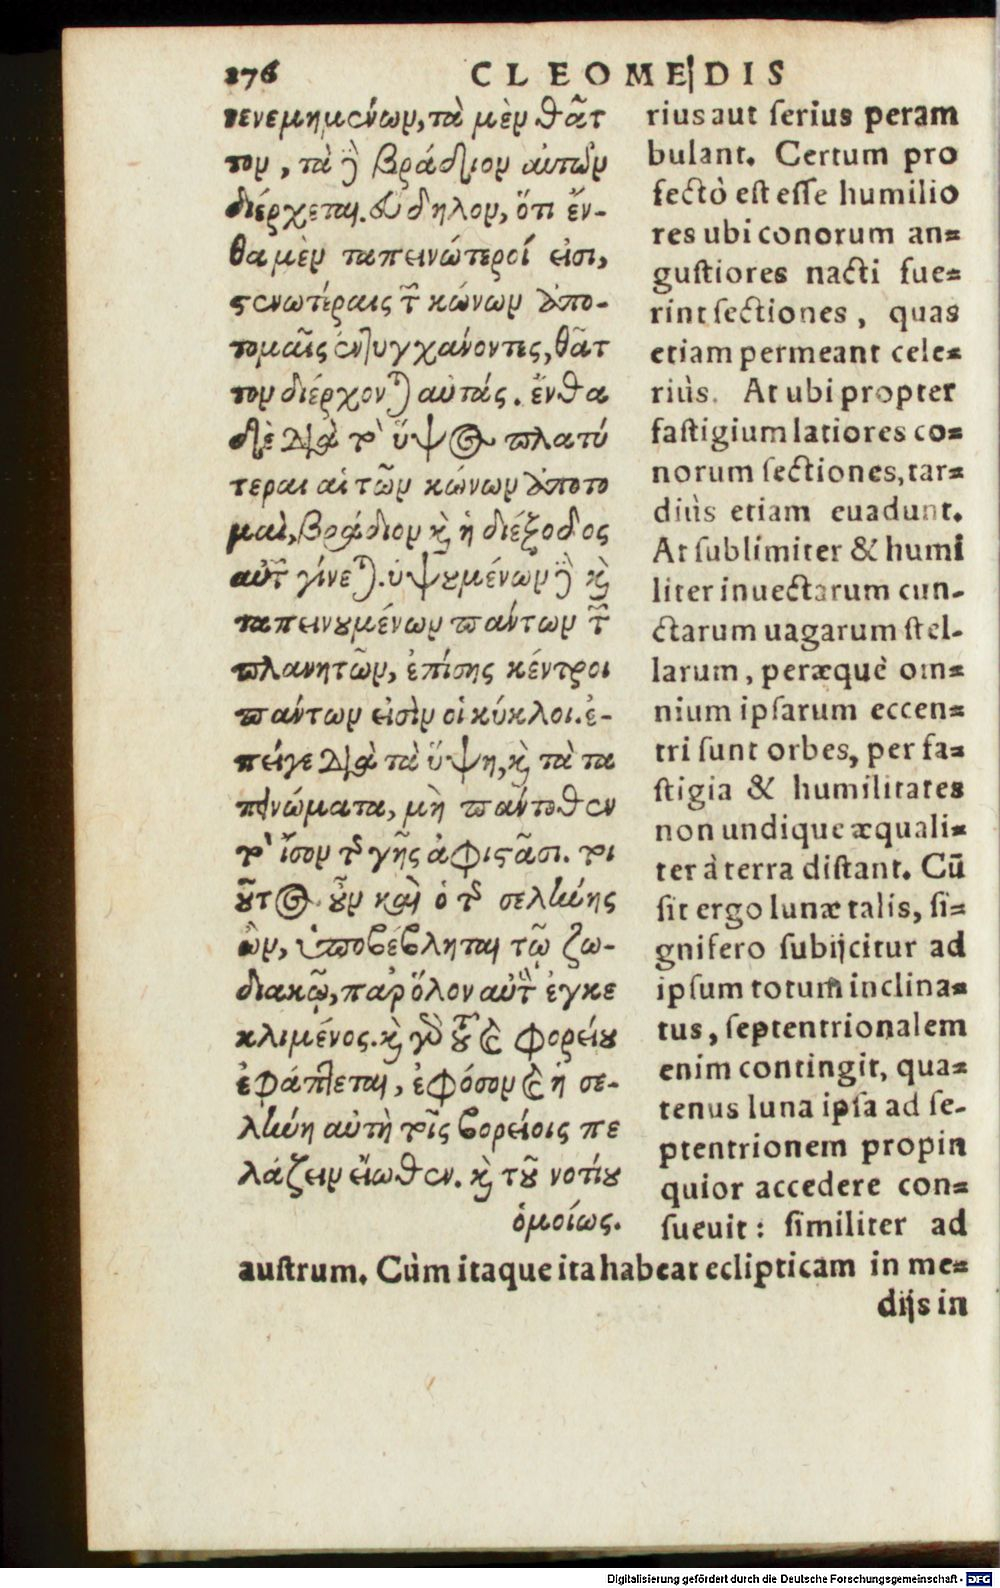 276 CLEOMEDIS
νενεμημένων, τὰ μὲν θᾶτ
τον, τὰ δὲ βράδιον αὐτῶν
διέρχεται. δῆλον, ὅτι ἔν-
θα μὲν ταπεινώτεροί εἰσι,
στενωτέραις τῶν κώνων ἀπο-
τομαῖς ἐντυγχάνοντες, θᾶτ
τον διέρχονται αὐτάς. ἔνθα
δὲ διὰ τὸ ὕψος πλατύ
τεραι αἱ τῶν κώνων ἀποτο
μαὶ, βράδιον καὶ ἡ διέξοδος
αὐτῶν γίνεται. ὑψουμένων δὲ καὶ
ταπεινουμένων πάντων τῶν
πλανητῶν, ἐπίσης κέντροι
πάντων εἰσὶν οἱ κύκλοι. ἐ-
πείγε διὰ τὰ ὕψη, καὶ τὰ τα
πεινώματα, μὴ πάντοθεν
τὸ ἴσον τῆς γῆς ἀφιστᾶσι. τοι
οῦτος οὖν καὶ ὁ τῆς σελήνης
ὢν, ὑποβέβληται τῷ ζω-
διακῷ, παρ' ὅλον αὐτὸν ἐγκε
κλιμένος. καὶ γὰρ τοῦ τε βορείου
ἐφάπτεται, ἐφόσον καὶ ἡ σε-
λήνη αὐτὴ τοῖς βορείοις πε
λάζειν εἴωθεν. καὶ τοῦ νοτίου
ὁμοίως.
rius aut serius peram
bulant. Certum pro
fectò est esse humilio
res ubi conorum an=
gustiores nacti fue=
rint sectiones, quas
etiam permeant cele=
riùs. At ubi propter
fastigium latiores co=
norum sectiones, tar=
diùs etiam euadunt.
At sublimiter & humi
liter inuectarum cun-
ctarum uagarum stel-
larum, peræquè om=
nium ipsarum eccen=
tri sunt orbes, per fa=
stigia & humilitates
non undique æquali=
ter à terra distant. Cũ
sit ergo lunæ talis, si=
gnifero subijcitur ad
ipsum totum inclina=
tus, septentrionalem
enim contingit, qua=
tenus luna ipsa ad se-
ptentrionem propin
quior accedere con=
sueuit: similiter ad
austrum. Cùm itaque ita habeat eclipticam in me=
dijs in
Digitalisierung gefördert durch die Deutsche Forschungsgemeinschaft - DFG